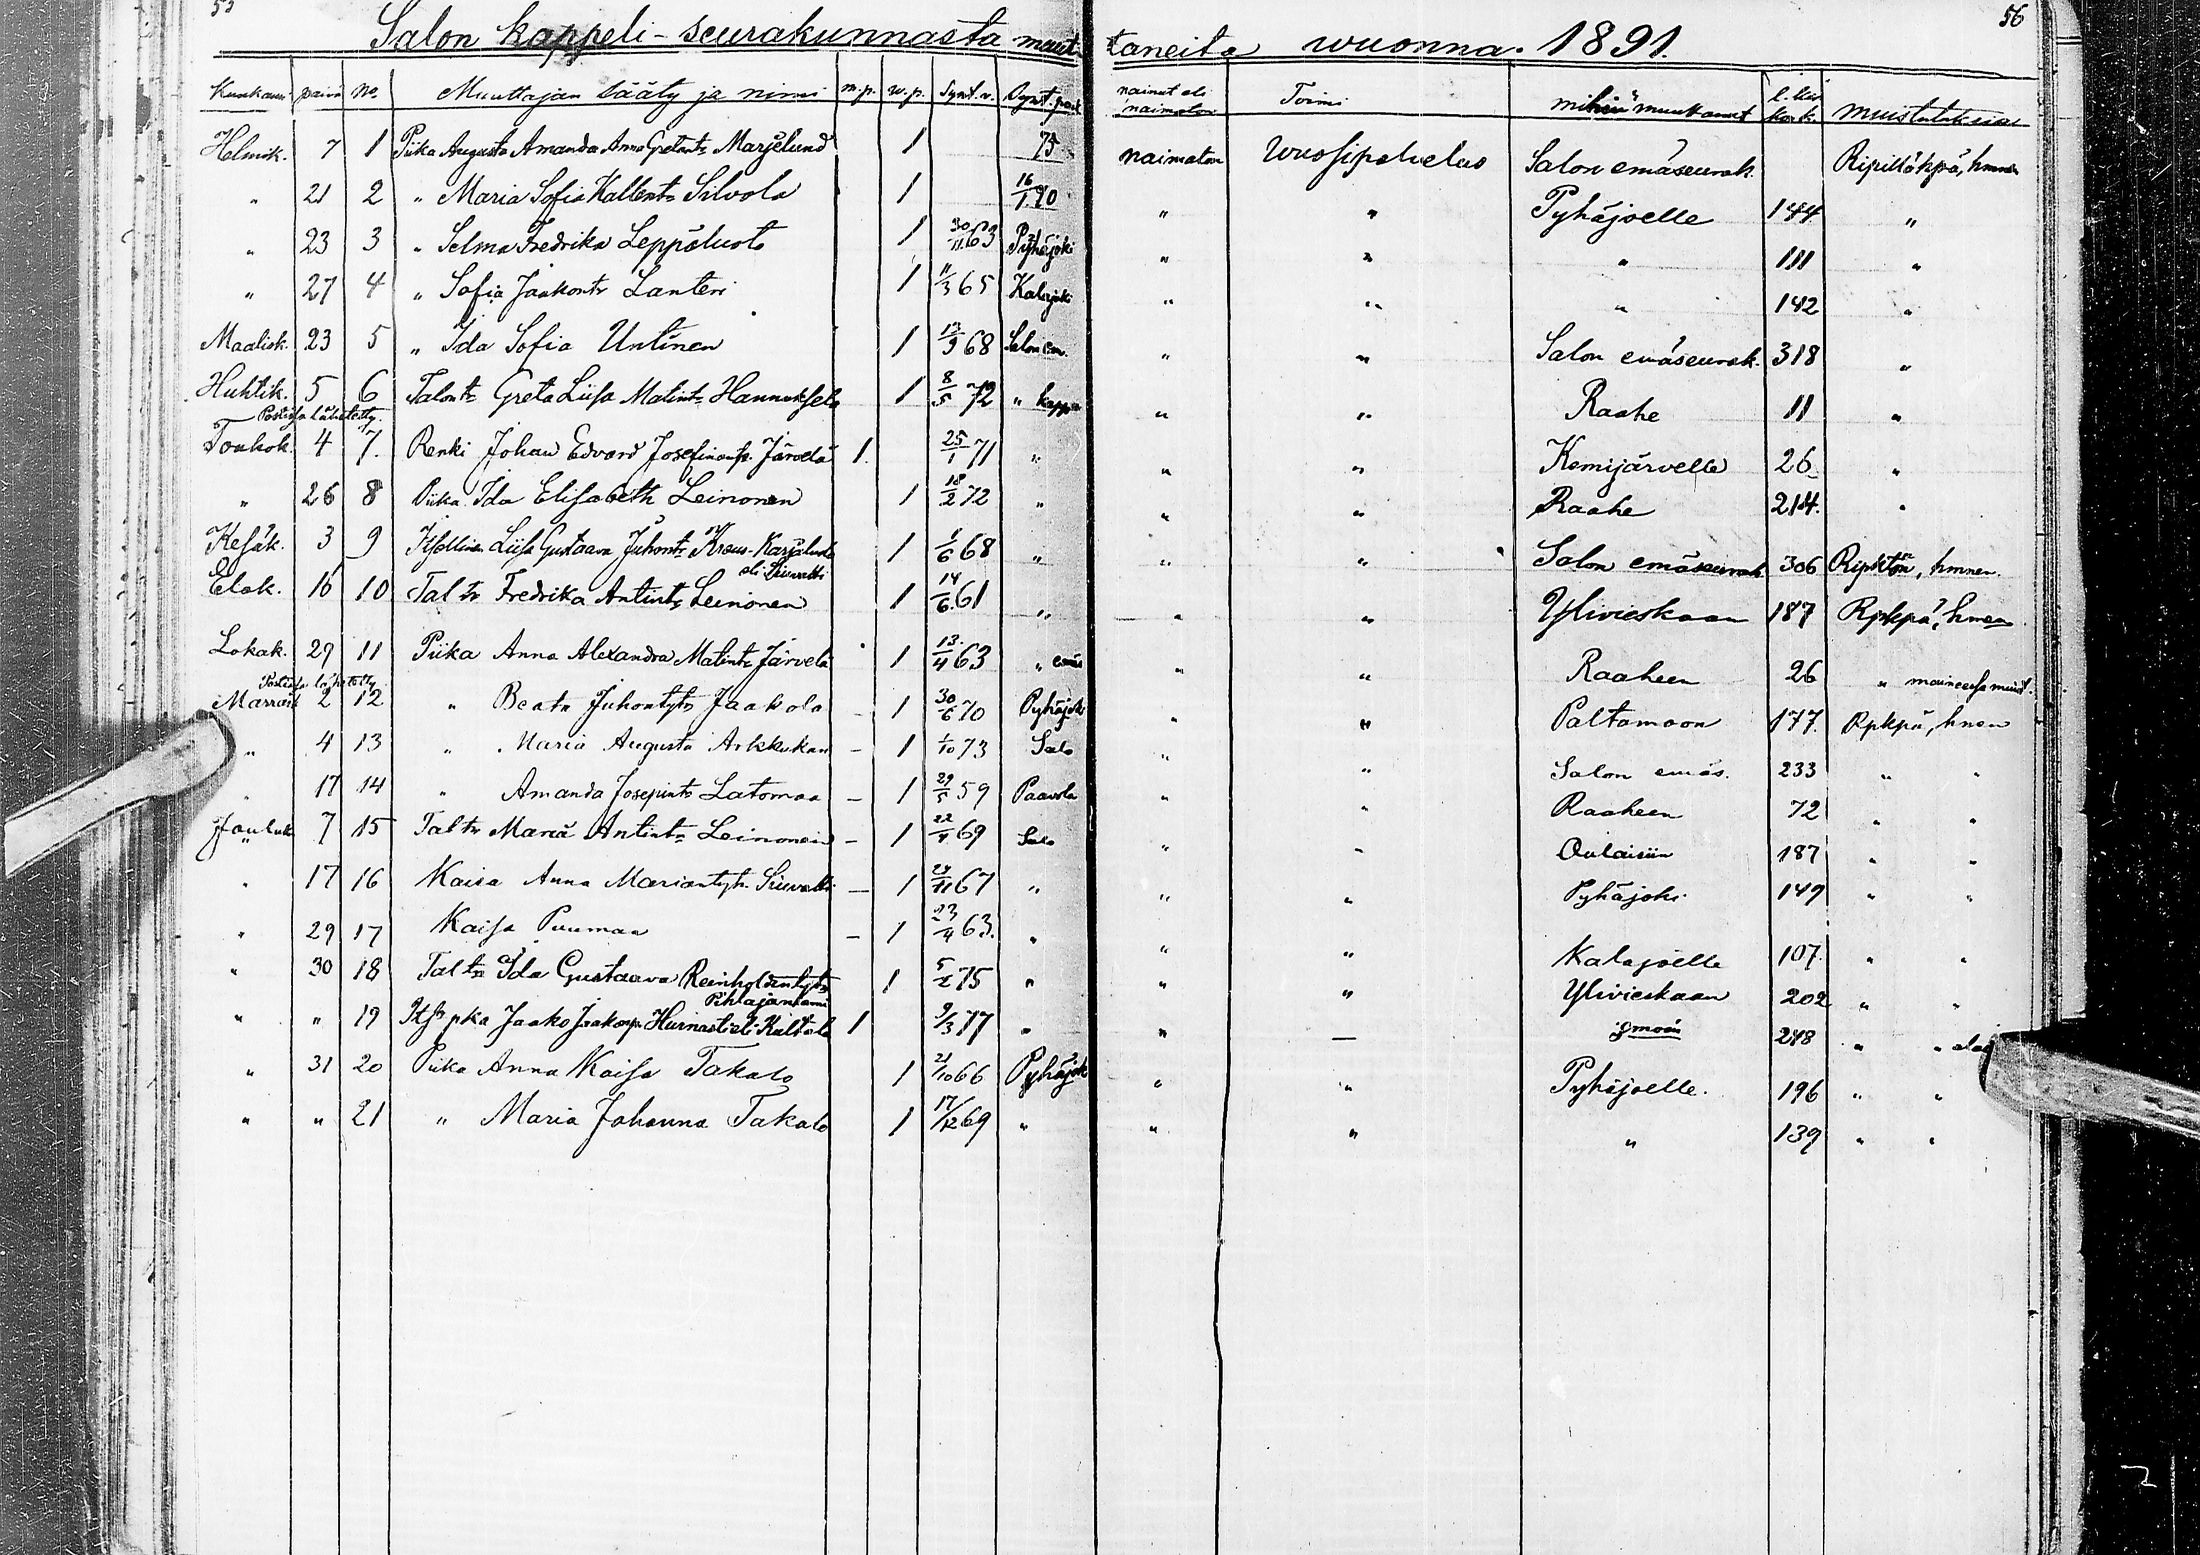 56
Salon kappeli-seurakunnasta muuttaneita wuonna. 1891.
Kuukausi päivä No. Muuttajan sääty ja nimi m.p. w.p. Synt.v. Synt. paik nainut eli naimaton Toimi mihin muuttanut l. kir Muistutuksia
Helmik. 7 1 Piika Augusta Amanda Anna Marjelund 1 75 naimaton Wuosipalvelus Salon emäseurak.
" 21 2 " Maria Sofia Kallent: Silvola 1 16/1 70 " " Pyhäjoelle 144 "
" 23 3 " Selma Fredrika Leppäluoto 1 30/11 63 Pyhäjoki " " " 111 "
" 27 4 " Sofia Jaakontr Lanteri 1 11/3 65 Kalajoki " " " 142 "
Maalisk. 23 5 " Ida Sofia Untinen 1 13/9 68 Salon em. " " Salon emäseurak. 318 "
Huhtik. 5 6 Talontr Greta Liisa Matintr Hannuksela 1 8/5 72 " kappe " " Raahe 11 "
Postissa lähetetty
Toukok. 4 7. Renki Johan Edvard Järvelä 1. 25/1 71 " " " Kemijärvelle 26 "
" 26 8 Piika Ida Elisabeth Leinonen 1 18/2 72 " " " Raahe 214. "
Kesäk. 3 9 Itsellinen Liisa Gustaava Juhontr 1 1/6 68 " " " Salon emäseurak 306 hmnen.
eli Siuvatti
Elok. 16 10 Taltr Fredrika Antintr Leinonen 1 14/6 61 " " " Ylivieskaan 187 Rpkpä, hmen
Lokak. 29 11 Piika Anna Alexandra Matintr Järvelä 1 13/4 63 " emäs " " Raaheen 26 "
Postissa lähetetty
Marrask 2 12 " Beata Juhontytr Jaakola - 1 30/6 70 Pyhäjoki " " Paltamoon 177. Rpkpä, hnen
" 4 13 " Maria Augusta Arkkukan - 1 1/10 73 Salo " " Salon emäs. 233 " "
" 17 14 " Amanda Josepintr Latomaa - 1 29/5 59 Paavola " " Raaheen 72 " "
Jouluk 7 15 Taltr Maria Antintr Leinonen - 1 22/4 69 Salo " " Oulaisiin 187 " "
" 17 16 Kaisa Anna Mariantyt. Siuvatti - 1 67 " " " Pyhäjoki 149 " "
" 29 17 Kaisa Puumaa - 1 23/4 63. " " " Kalajoelle 107. " "
" 30 18 Taltr Ida Gustaava Reinholdintytr 1 5/2 75 " " " Ylivieskaan 202 " "
Pihlajaniemi
" " 19 pka Jaako Jaakonp. Hurnasti eli Kaltala 1 9/3 77 " " — 248 " "
" 31 20 Piika Anna Kaisa Takalo 1 21/10 66 Pyhäjok " " Pyhäjoelle. 196 " "
" " 21 " Maria Johanna Takalo 1 17/12 69 " " " " 139 " "